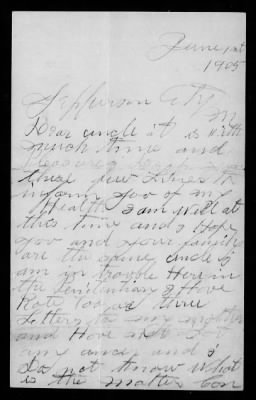 June 1st
1905
Jefferson City
Mo
Dear uncle it is with
much time and
pleasure I
these few Lines to
inform you of my
Health I am well at
this time and I Hope
you and your family
are the same, uncle I
am in trouble Here in
the Penitentiary I Have
Rote too or three
Letters to my
and Have not
any ancer and I
Do not know What
is the matter